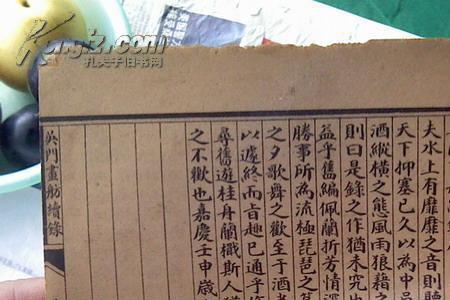 夫水上有靡靡之音則聽
天下抑塞已久以為中
酒縱橫之態風雨狼藉之
則曰是錄之作猶未究也
益乎舊編佩蘭折芳情深
勝事所為流極琵琶之
之夕歌舞之歡至于酒
以遽終而旨趣已通乎
尋舊遊桂舟蘭檝斯人
之不歡也嘉慶壬申歲
吳門畫舫續錄
Kongfz.com
孔夫子旧书网